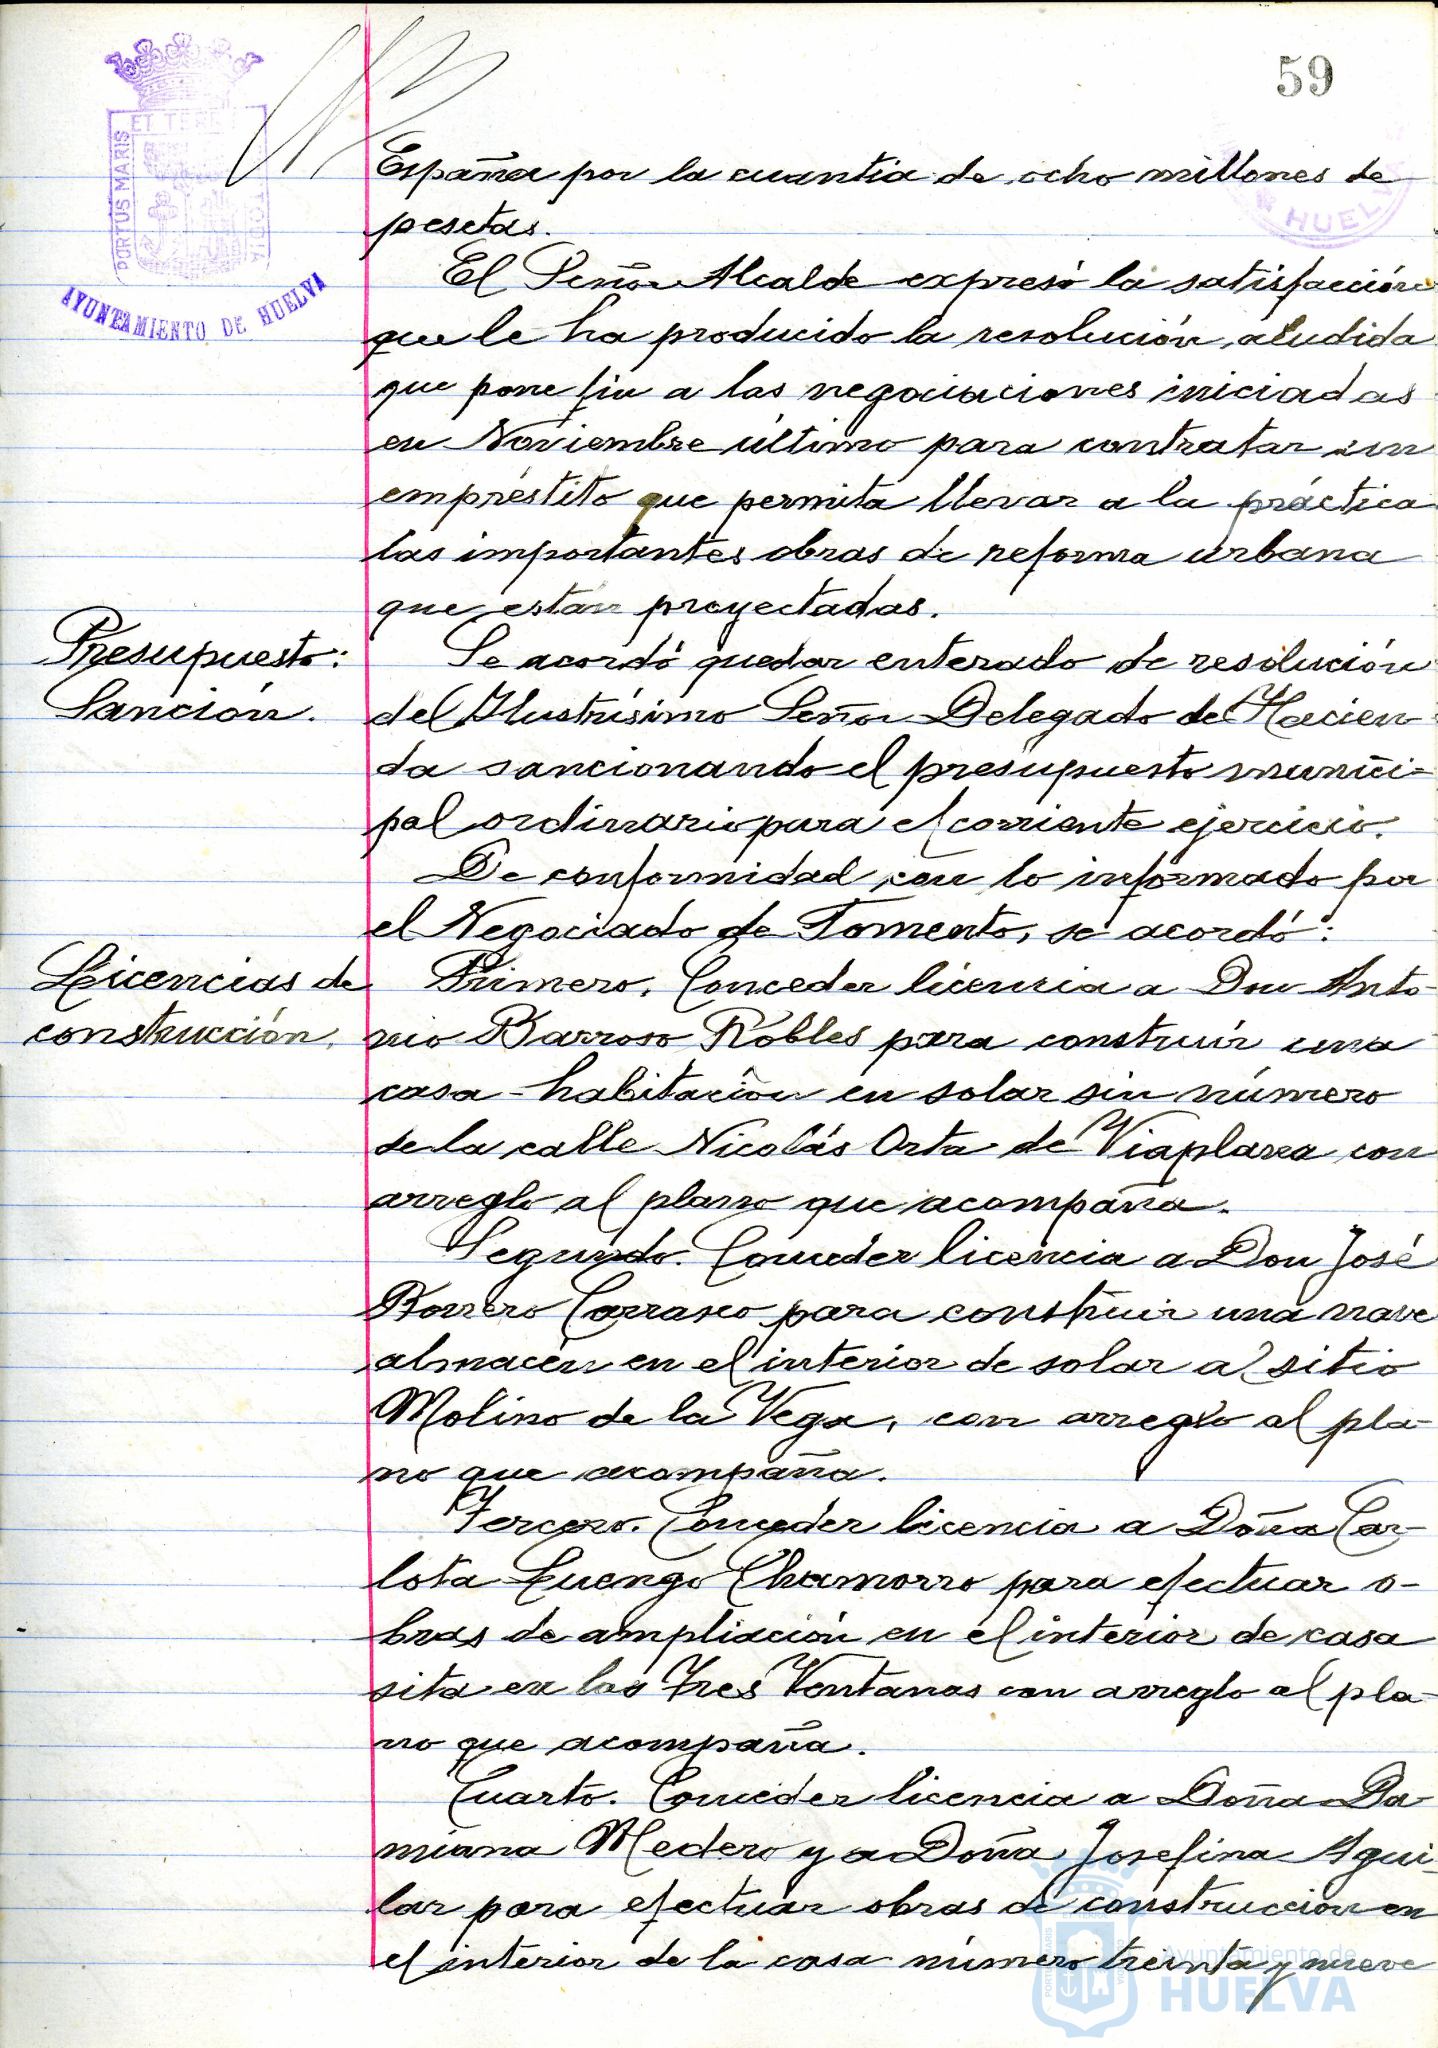 59
ET TERR
PORTUS MARIS
TODIA
AYUNTAMIENTO DE HUELVA
HUELV
España por la cuantia de ocho millones de
pesetas.
El Señor Alcalde expresó la satisfacción
que le ha producido la resolución aludida
que pone fin a las negociaciones iniciadas
en Noviembre último para contratar un
empréstito que permita llevar a la práctica
las importantes obras de reforma urbana
que están proyectadas.
Presupuesto:
Sanción.
Se acordó quedar enterado de resolución
del Ilustrísimo Señor Delegado de Hacien-
da sancionando el presupuesto munici-
pal ordinario para el corriente ejercicio.
De conformidad con lo informado por
el Negociado de Fomento, se acordó:
Licencias de
construcción.
Primero. Conceder licencia a Don Anto-
nio Barroso Robles para construir una
casa-habitación en solar sin número
de la calle Nicolás Orta de Viaplana con
arreglo al plano que acompaña.
Segundo. Conceder licencia a Don José
Borrero Carrasco para construir una nave
almacén en el interior de solar al sitio
Molino de la Vega, con arreglo al pla-
no que acompaña.
Tercero. Conceder licencia a Doña Car-
lota Luengo Chamorro para efectuar o-
bras de ampliación en el interior de casa
sita en las Tres Ventanas con arreglo al pla-
no que acompaña.
Cuarto. Conceder licencia a Doña Da-
miana Medero y a Doña Josefina Agui-
lar para efectuar obras de construcción en
el interior de la casa número treinta y nueve
Ayuntamiento de
HUELVA